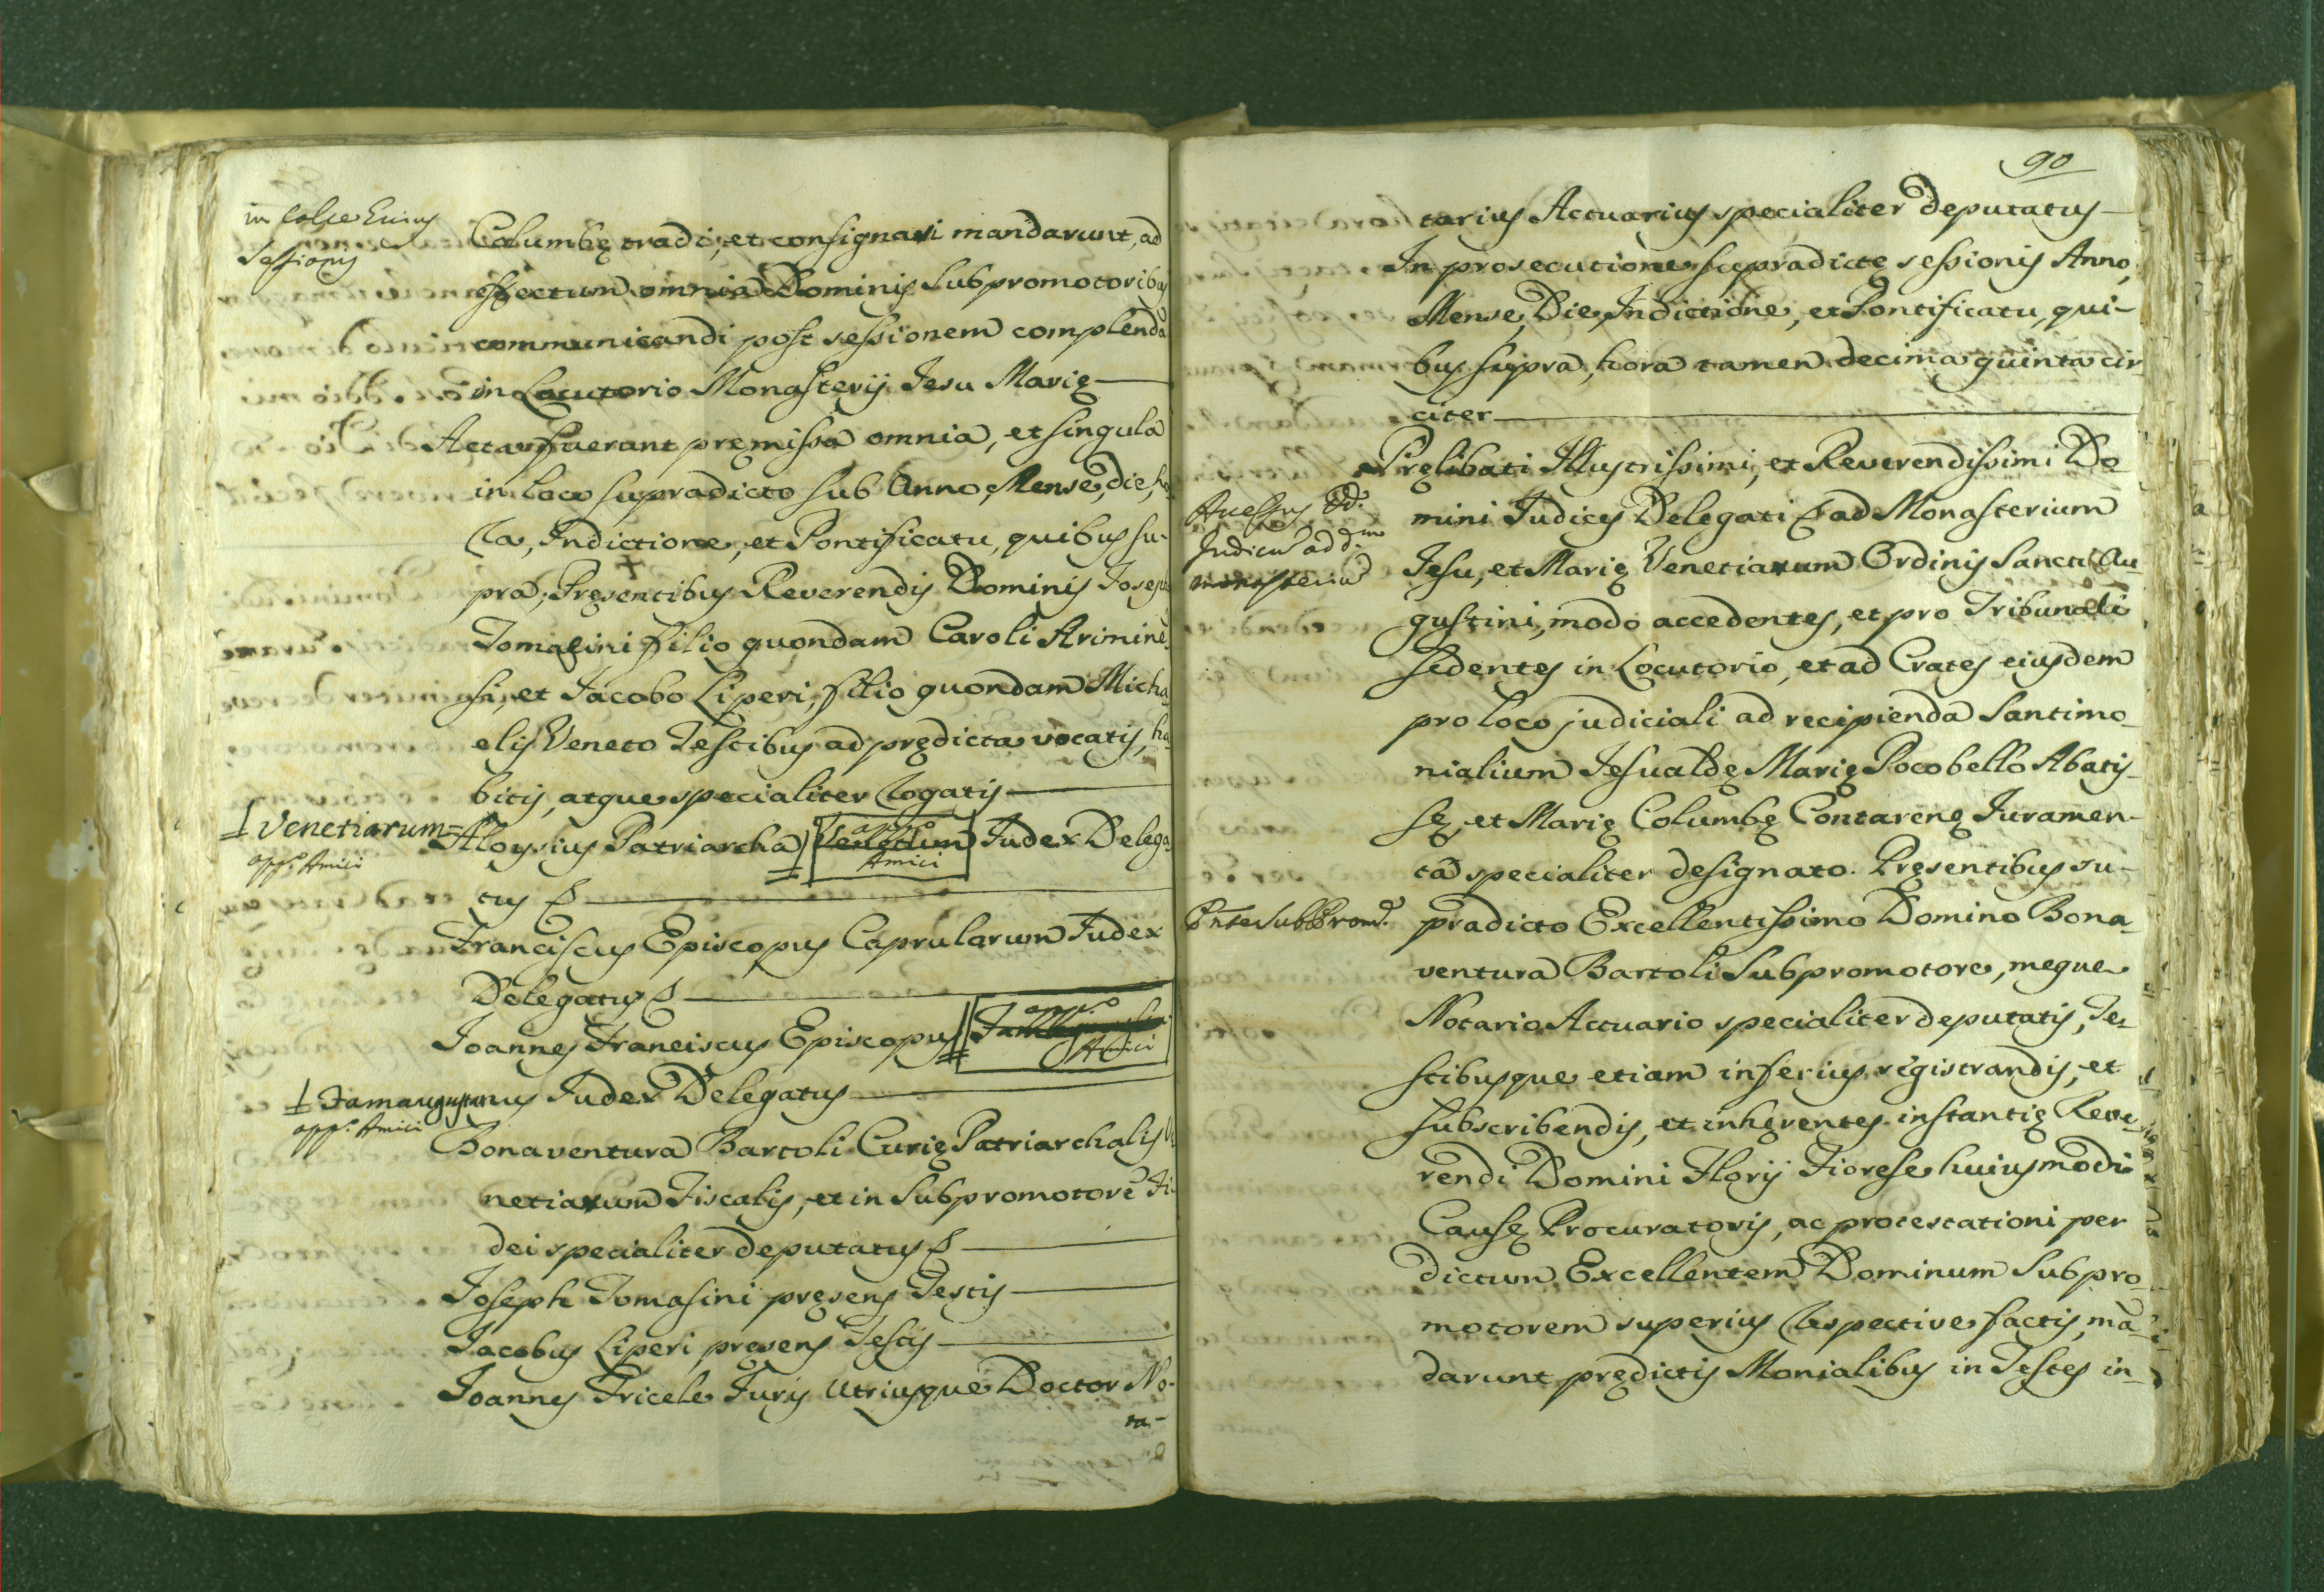 in Calce huius
sessionis
Columbę tradi, et consignari mandarunt, ad
effectum omnia Dominis Subpromotoribus
communicandi post sessionem complenda
in Locutorio Monasterij Jesu Marię
Acta fuerunt premissa omnia, et singula
in loco supradicto sub Anno, Mense, die, ho
ra, Indictione, et Pontificatu, quibus su-
pra, Pręsentibus Reverendis Dominis Joseph
Tomasini filio quondam Caroli Arimine
si, et Jacobo Liperi, filio quondam Micha
elis Veneto Testibus ad prędicta vocatis, ha
bitis, atque specialiter rogatis
Venetiarum=
app.º Amici
Aloysius Patriarcha Judex Delega
app.º
Amici
tus
Franciscus Episcopus Caprularum Judex
Delegatus
Joannes Franciscus Episcopus
app.º
Amici
Famaugustanus Judex Delegatus
app.º Amici
Bonaventura Bartoli Curię Patriarchalis Ve
netiarum Fiscalis, et in Subpromotorē Fi
dei specialiter deputatus
Joseph Tomasini pręsens Testis
Jacobus Liperi pręsens Testis
Joannes Tricele Juris Utriusque Doctor No-
ta-
90
tarius Actuarius specialiter deputatus
In prosecutione supradictę sessionis Anno,
Mense, Die, Indictione, et Pontificatu, qui-
bus supra, hora tamen decima quinta cir
citer
Pręlibati Illustrissimi, et Reverendissimi Do
mini Judices Delegati ad Monasterium
Accessus DD.
Judicũ ad d.m
monasteriũ
Jesu, et Marię Venetiarum Ordinis Sancti Au
gustini, modo accedentes, et pro Tribunali
sedentes in Locutorio, et ad Crates eiusdem
pro loco judiciali ad recipienda Santimo-
nialium Jesualdę Marię Pocobello Abatis-
sę, et Marię Columbę Contarenę Juramen-
ta specialiter designato. Pręsentibus su-
Pnte SubProm.e
pradicto Excellentissimo Domino Bona-
ventura Bartoli Subpromotore, meque
Notario Actuario specialiter deputatis, Te-
stibusque etiam inferius registrandis, et
subscribendis, et inhęrentes instantię Reve-
rendi Domini Florij Fiorese huiusmodi
Causę Procuratoris, ac protestationi per
dictum Excellentem Dominum Subpro-
motorem superius respective factis, mã
darunt prędictis Monialibus in Testes in-